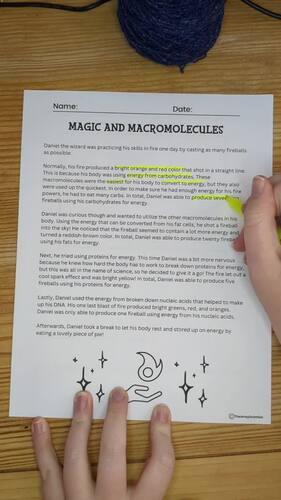 Name: Date:
MAGIC AND MACROMOLECULES
Daniel the wizard was practicing his skills in fire one day by casting as many fireballs
as possible.
Normally, his fire produced a bright orange and red color that shot in a straight line.
This is because his body was using energy from carbohydrates. These
macromolecules were the easiest for his body to convert to energy, but they also
were used up the quickest. In order to make sure he had enough energy for his fire
powers, he had to eat many carbs. In total, Daniel was able to produce seven
fireballs using his carbohydrates for energy.
Daniel was curious though and wanted to utilize the other macromolecules in his
body. Using the energy that can be converted from his fat cells, he shot a fireball
into the sky! He noticed that the fireball seemed to contain a lot more energy and
turned a reddish-brown color. In total, Daniel was able to produce twenty fireballs
using his fats for energy.
Next, he tried using proteins for energy. This time Daniel was a bit more nervous
because he knew how hard the body has to work to break down proteins for energy,
but this was all in the name of science, so he decided to give it a go! The fire let out a
cool spark effect and was bright yellow! In total, Daniel was able to produce five
fireballs using his proteins for energy.
Lastly, Daniel used the energy from broken down nucleic acids that helped to make
up his DNA. His one last blast of fire produced bright greens, red, and oranges.
Daniel was only able to produce one fireball using energy from his nucleic acids.
Afterwards, Daniel took a break to let his body rest and stored up on energy by
eating a lovely piece of pie!